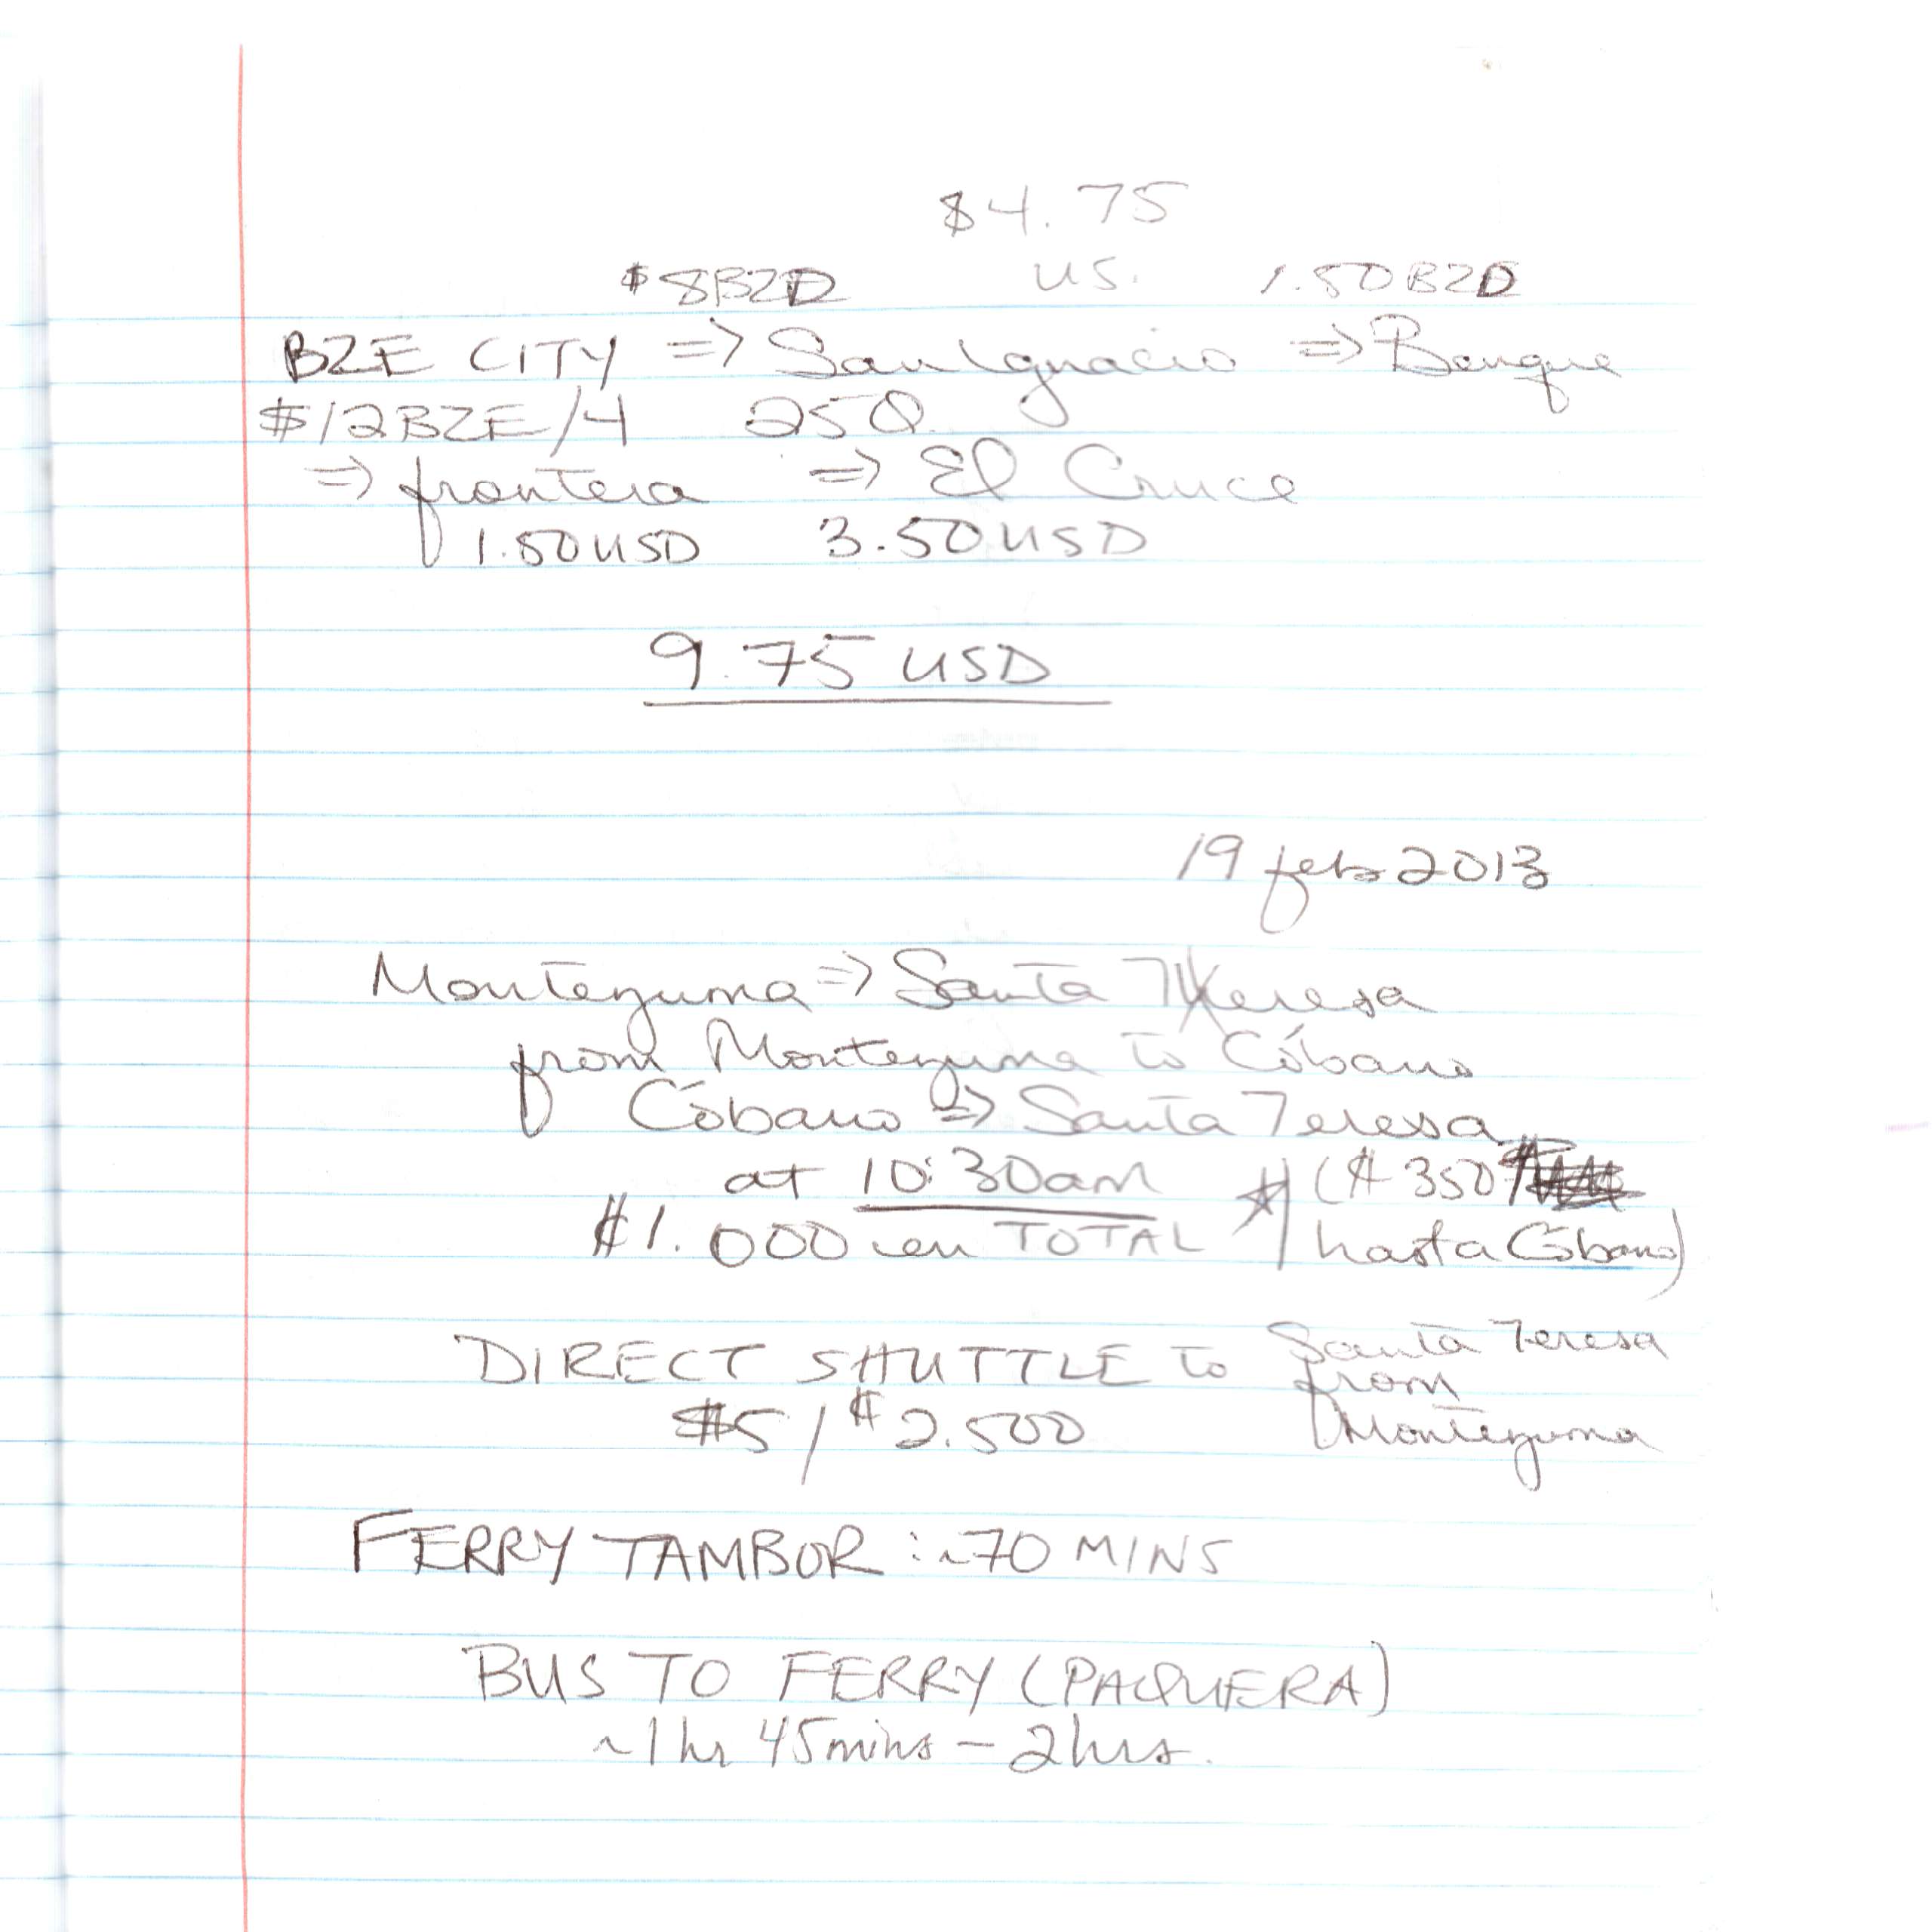 $4.75
$8BZD US. 1.50BZD
BZE CITY => San Ignacio => Benque
$12BZE/4 25Q
=> frontera => El Cruce
1.50USD 3.50USD
9.75 USD
19 feb 2013
Montezuma => Santa Teresa
from Montezuma to Cóbano
Cóbano => Santa Teresa
at 10:30am ($350
$1.000 en TOTAL hasta Cóbano)
DIRECT SHUTTLE to Santa Teresa
from
$5/$2.500 Montezuma
FERRY TAMBOR: ~70 MINS
BUS TO FERRY (PAQUERA)
~1hr 45mins - 2hrs.